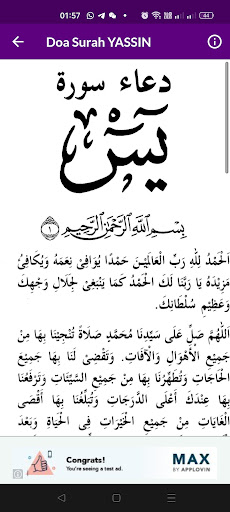 01:57
44
Doa Surah YASSIN
دعاء سورة
يسٓ
بِسْمِ اللَّهِ الرَّحْمَنِ الرَّحِيمِ ١
اَلْحَمْدُ لِلَّهِ رَبِّ الْعَالَمِيْنَ حَمْدًا يُوَافِيْ نِعَمَهُ وَيُكَافِئُ
مَزِيْدَهُ يَا رَبَّنَا لَكَ الْحَمْدُ كَمَا يَنْبَغِيْ لِجَلَالِ وَجْهِكَ
وَعَظِيْمِ سُلْطَانِكَ.
اَللَّهُمَّ صَلِّ عَلَى سَيِّدِنَا مُحَمَّدٍ صَلَاةً تُنْجِيْنَا بِهَا مِنْ
جَمِيْعِ الْأَهْوَالِ وَالْآفَاتِ. وَتَقْضِيْ لَنَا بِهَا جَمِيْعَ
الْحَاجَاتِ وَتُطَهِّرُنَا بِهَا مِنْ جَمِيْعِ السَّيِّئَاتِ وَتَرْفَعُنَا
بِهَا عِنْدَكَ أَعْلَى الدَّرَجَاتِ وَتُبَلِّغُنَا بِهَا أَقْصَى
الْغَايَاتِ مِنْ جَمِيْعِ الْخَيْرَاتِ فِي الْحَيَاةِ وَبَعْدَ
Congrats!
You're seeing a test ad.
MAX
BY APPLOVIN